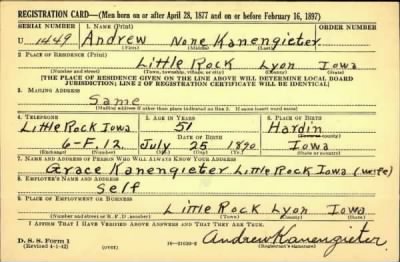 REGISTRATION CARD—(Men born on or after April 28, 1877 and on or before February 16, 1897)
SERIAL NUMBER 1. NAME (Print) ORDER NUMBER
U 1449 Andrew None Kanengieter
(First) (Middle) (Last)
2. PLACE OF RESIDENCE (Print)
Little Rock Lyon Iowa
(Number and street) (Town, township, village, or city) (County) (State)
[THE PLACE OF RESIDENCE GIVEN ON THE LINE ABOVE WILL DETERMINE LOCAL BOARD
JURISDICTION; LINE 2 OF REGISTRATION CERTIFICATE WILL BE IDENTICAL]
3. MAILING ADDRESS
Same
[Mailing address if other than place indicated on line 2. If same insert word same]
4. TELEPHONE 5. AGE IN YEARS 6. PLACE OF BIRTH
Little Rock Iowa 51 Hardin
DATE OF BIRTH (Town or county)
6-F. 12 July 25 1890 Iowa
(Exchange) (Number) (Mo.) (Day) (Yr.) (State or country)
7. NAME AND ADDRESS OF PERSON WHO WILL ALWAYS KNOW YOUR ADDRESS
Grace Kanengieter Little Rock Iowa (wife)
8. EMPLOYER'S NAME AND ADDRESS
Self
9. PLACE OF EMPLOYMENT OR BUSINESS
Little Rock Lyon Iowa
(Number and street or R. F. D. number) (Town) (County) (State)
I AFFIRM THAT I HAVE VERIFIED ABOVE ANSWERS AND THAT THEY ARE TRUE.
D. S. S. Form 1
(Revised 4-1-42) (over) Andrew Kanengieter
(Registrant's signature)